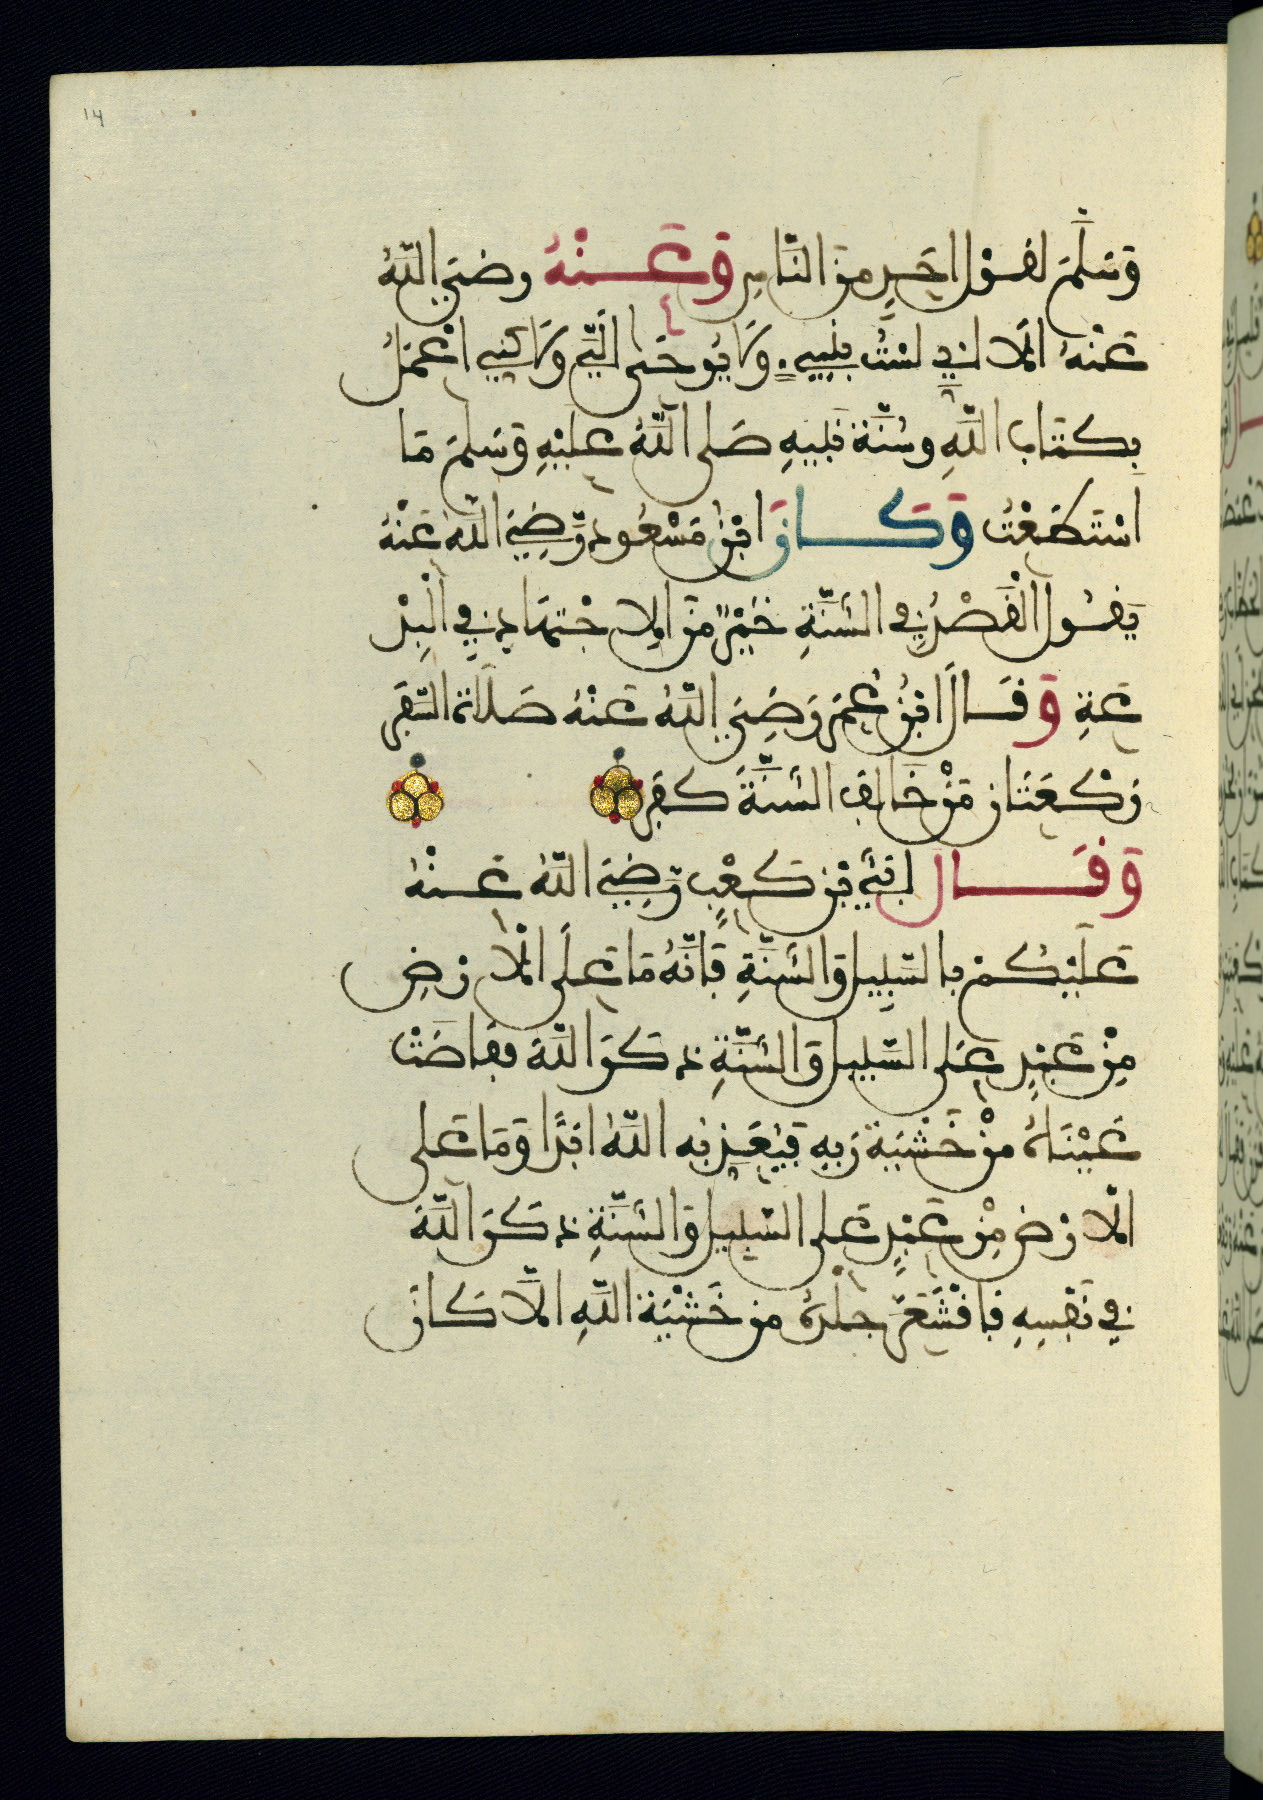 14
وَسَلَّمَ لقول احَدٍ مِنَ النَّاسِ وَعَنْهُ رضيَ اللَّهُ
عَنْهُ الَا اني لسْتُ بِنَبِيءٍ وَلَا يُوحَى الَيَّ وَلَاكنِي اعْمَلُ
بكتَاب اللَّهِ وسُنَّة نَبِيهِ صَلى اللَّهُ عليْهِ وَسَلمَ مَا
اسْتَطَعْتُ وَكَانَ ابْنُ مَسْعُود رَضِيَ اللَّهُ عَنْهُ
يَقُول الْقَصْدُ في السُّنَّةِ خَيْرٌ مِنَ الاجْتهَاد في الْبِدْ
عَةِ وَقَالَ ابْنُ عُمَرَ رَضِيَ اللَّهُ عَنْهُ صَلَاة السَّفَر
رَكْعَتَان مَنْ خَالَفَ السُّنَّةَ كَفَر
وَقَال ابَيُّ بْن كَعْبٍ رَضِيَ اللَّهُ عَنْهُ
عَلَيْكُمْ بالسَّبِيل وَالسُّنَّةِ فَإنَّهُ مَا عَلَى الَارْضِ
مِنْ عَبْدٍ عَلى السَّبِيل وَالسُّنَّةِ ذكَرَ اللَّهَ ففاضَتْ
عَيْنَاهُ مِنْ خَشْيَة رَبِهِ فَيُعَذِبُه اللَّهُ ابَدًا وَمَا عَلى
الَارْض مِنْ عَبْدٍ عَلى السَّبِيل وَالسُّنَّةِ ذكَرَ اللَّهَ
في نَفْسِهِ فَاقْشَعَرَّ جلْدُهُ من خَشْيَة اللَّهِ الَّا كَانَ